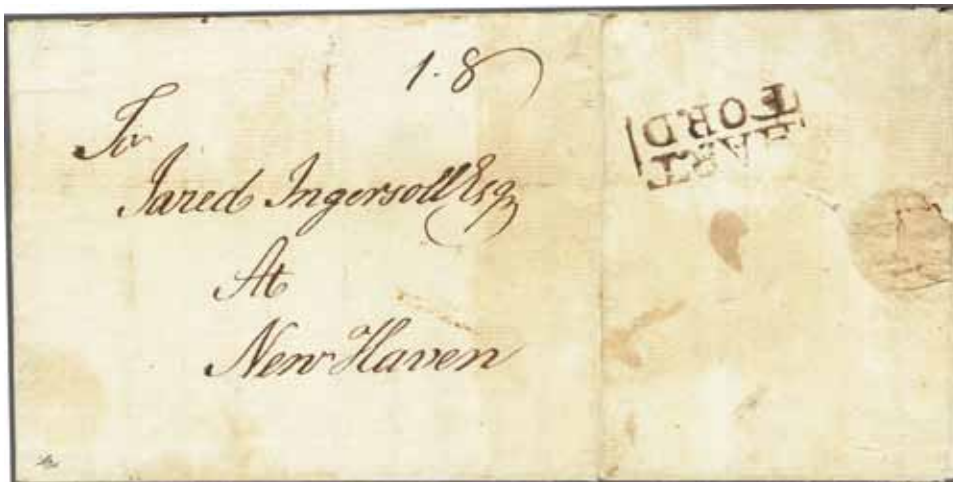 1.8
To
Jared Ingersoll Esq
At
New Haven
HART
FORD